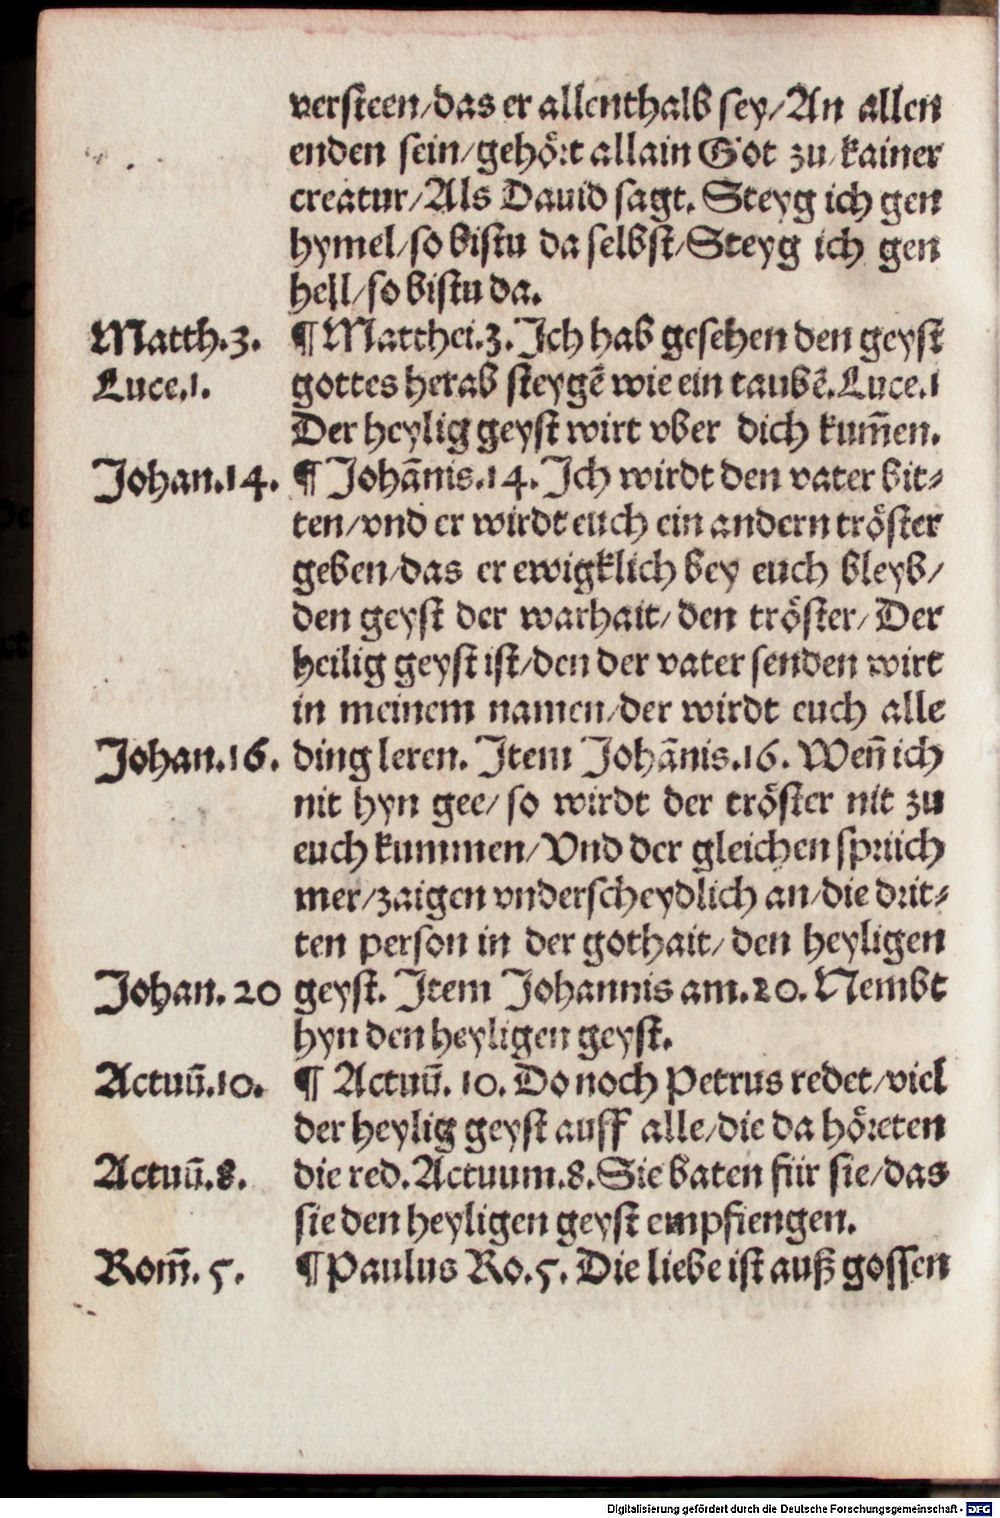 versteen/das er allenthalb sey/An allen
enden sein/gehört allain Got zu/kainer
creatur/Als Dauid sagt. Steyg ich gen
hymel/so bistu da selbst/Steyg ich gen
hell/so bistu da.
Matth.3. ¶ Matthei.3. Ich hab gesehen den geyst
Luce.1. gottes herab steygē wie ein taubē. Luce.1
Der heylig geyst wirt vber dich kum̄en.
Johan.14. ¶ Johānis.14. Ich wirdt den vater bit⸗
ten/vnd er wirdt euch ein andern tröster
geben/das er ewigklich bey euch bleyb/
den geyst der warhait/den tröster/Der
heilig geyst ist/den der vater senden wirt
in meinem namen/der wirdt euch alle
Johan.16. ding leren. Item Johānis.16. Wen̄ ich
nit hyn gee/so wirdt der tröster nit zu
euch kummen/Vnd der gleichen sprüch
mer/zaigen vnderscheydlich an/die drit⸗
ten person in der gothait/den heyligen
Johan. 20 geyst. Item Johannis am.20. Nembt
hyn den heyligen geyst.
Actuū.10. ¶ Actuū. 10. Do noch Petrus redet/viel
der heylig geyst auff alle/die da höreten
Actuū.8. die red. Actuum.8. Sie baten für sie/das
sie den heyligen geyst empfiengen.
Rom̄. 5. ¶ Paulus Ro.5. Die liebe ist auß gossen
Digitalisierung gefördert durch die Deutsche Forschungsgemeinschaft - DFG